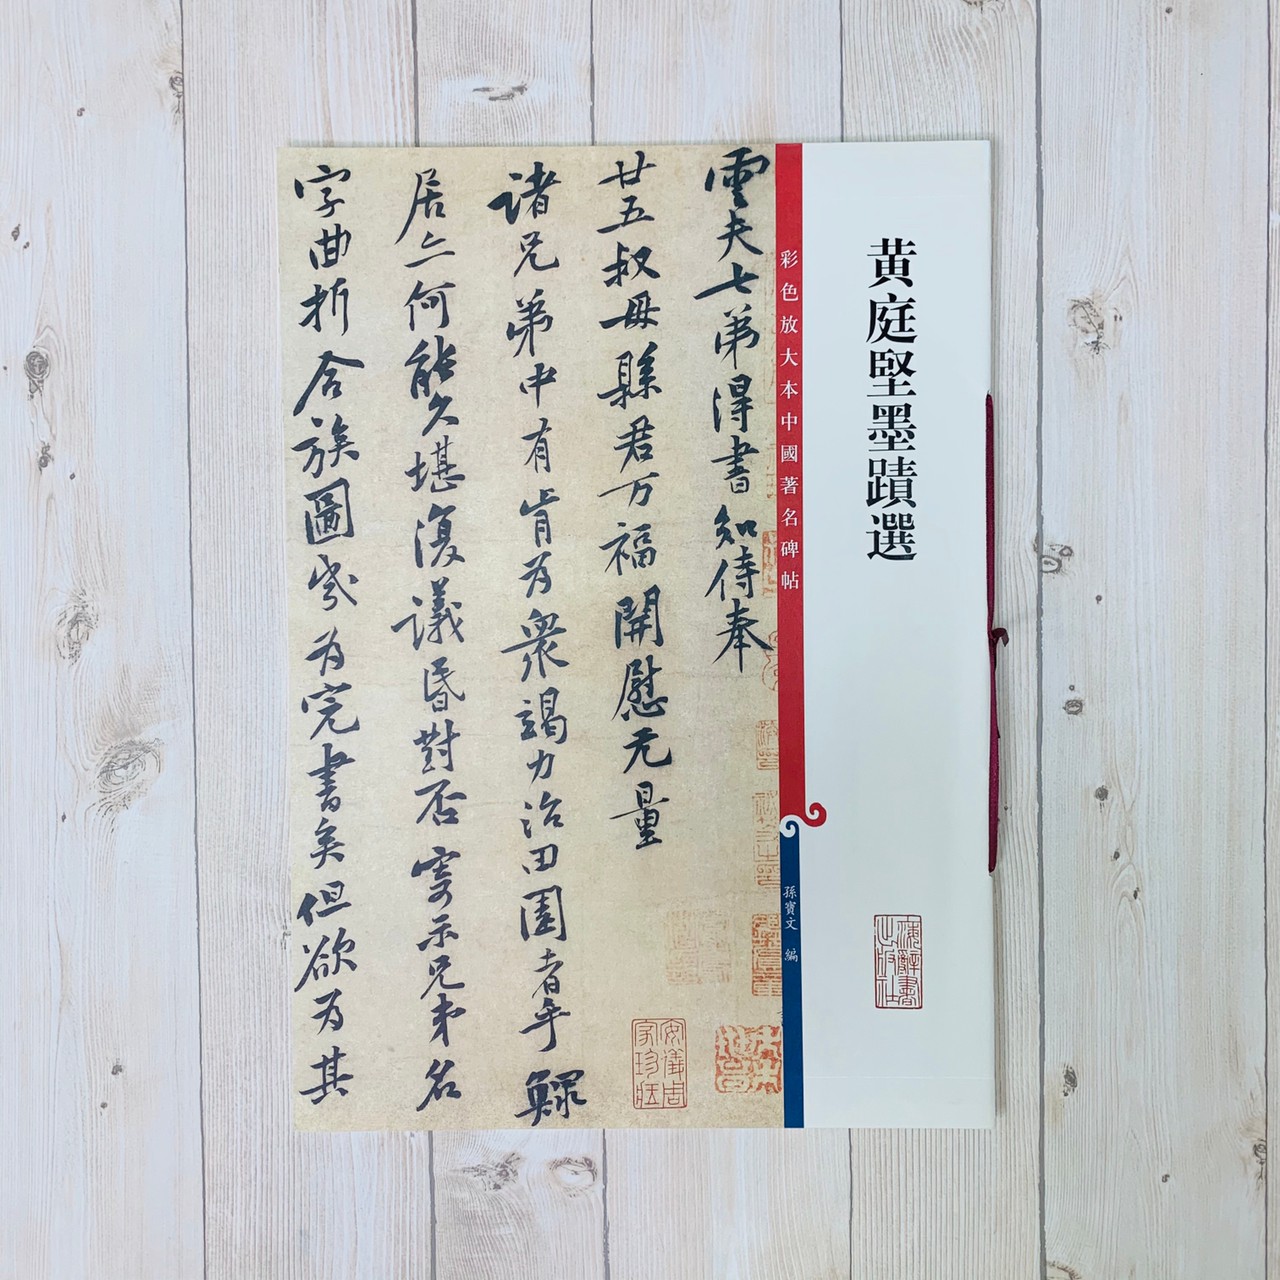 黄庭堅墨蹟選
彩色放大本中國著名碑帖
孫寶文 編
海辭書出版社
雲夫七弟得書知侍奉
廿五叔母縣君万福開慰无量
諸兄弟中有肯为衆竭力治田園者乎鰥
居亦何能久堪復議昏對否寄示兄弟名
字曲折合族圖岁为完書矣但欲为其
安儀周家珍藏